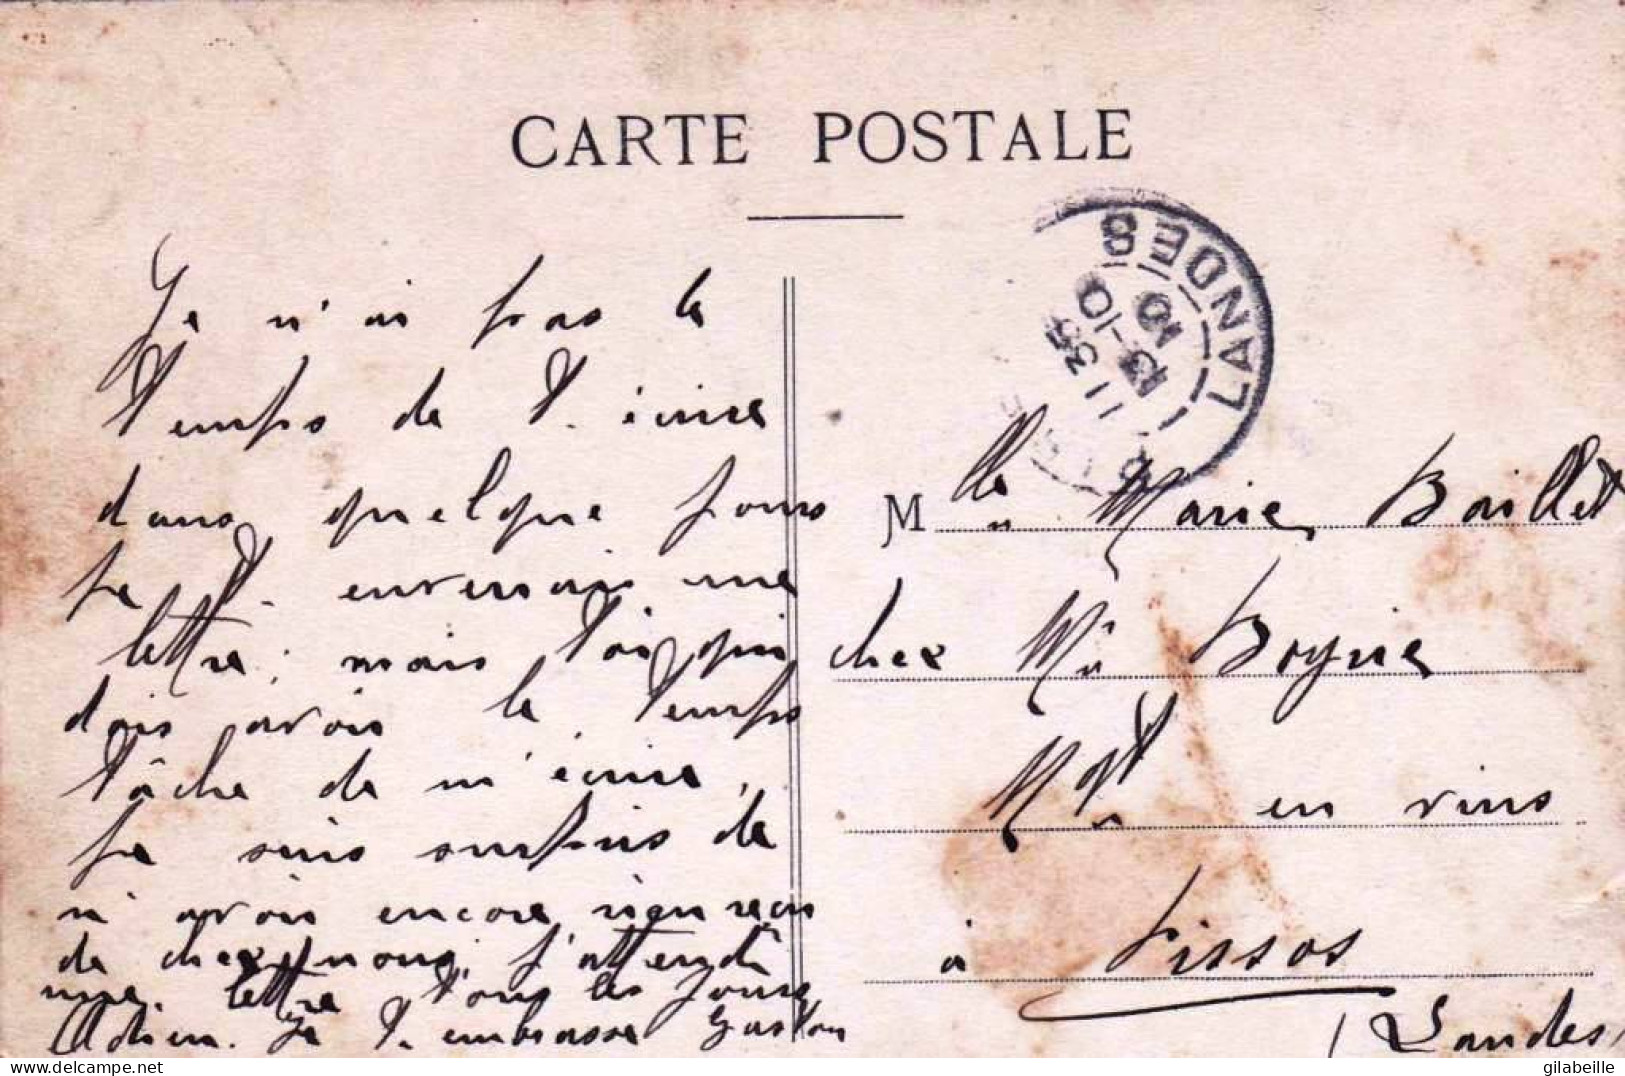 CARTE POSTALE
LANDES
11 35
13-10
10
Je n'ai pas le
temps de t'écrire
dans quelque jours
je t'enverrais une
lettre; mais toi qui
dois avoir le temps
tâche de m'écrire,
je suis surpris de
n'avoir encore rien reçu
de chez nous, j'attends
une lettre tous les jours
Adieu. Je t'embrasse Gaston
Mlle Marie Baillet
chez Mr Boyrie
Mgt en vins
à Pissos
(Landes)
gilabeille